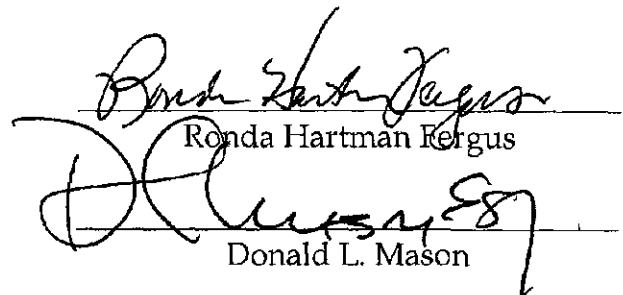 Ronda Hartman Fergus
Ronda Hartman Fergus
Esq
Donald L. Mason